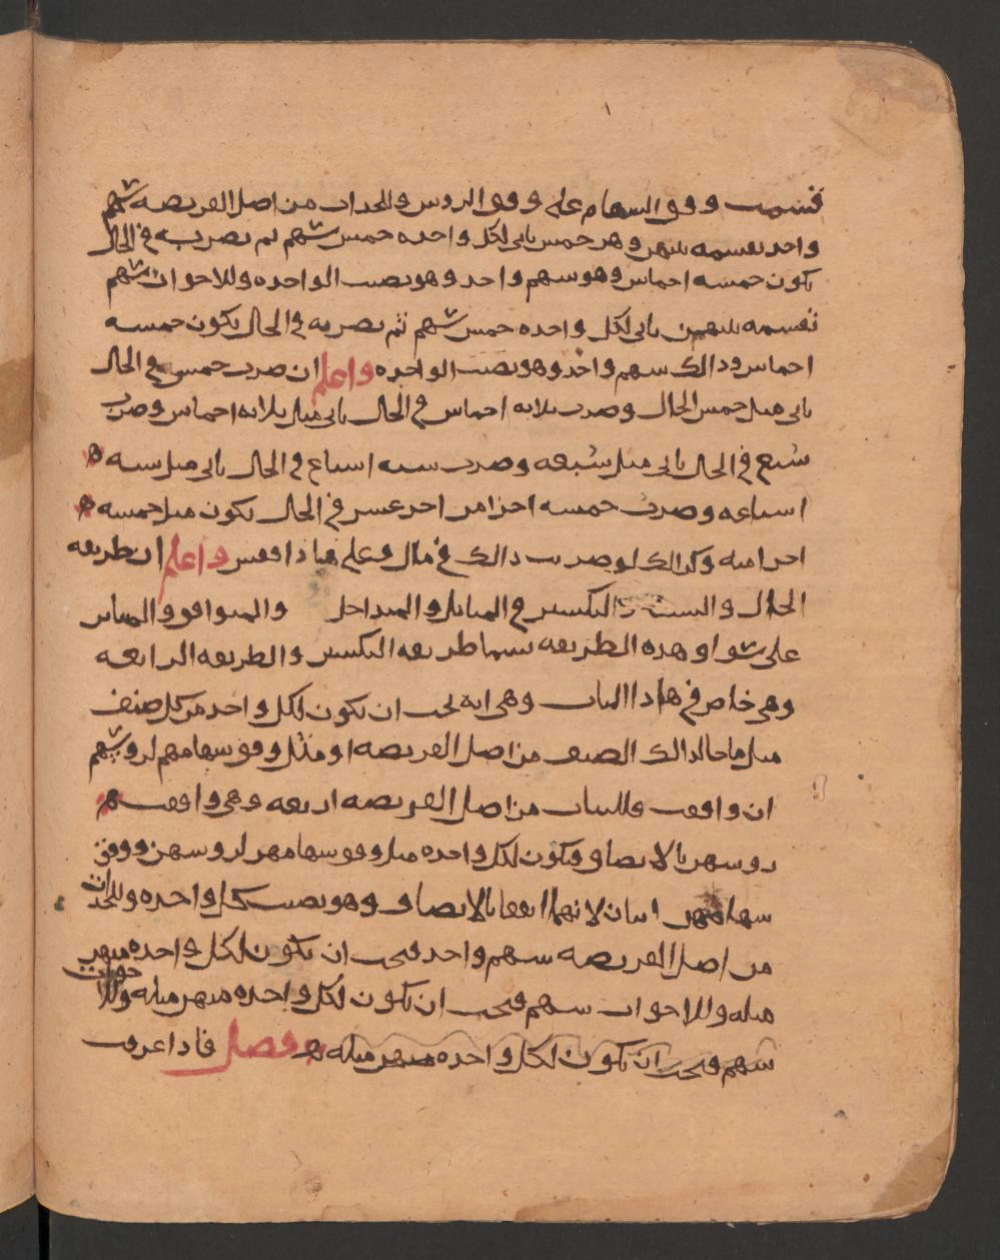 قسمت وفق السهام على وفق الروس وللجدات من اصل الفريضه سهم
واحد نقسمه بينهن وهن خمس ياتي لكل واحده خمس سهم ثم نضربه في الحال
يكون خمسه اخماس وهو سهم واحد وهو نصيب الواحده وللاخوات سهم
نقسمه بينهن ياتي لكل واحده خمس سهم ثم نضربه في الحال يكون خمسه
اخماس وذالك سهم واحد وهو نصيب الواحده واعلم ان ضرب خمس في الحال
ياتي مثل خمس الحال وضرب ثلاثه اخماس في الحال ياتي مثل ثلاثه اخماس وضرب
سبع في الحال ياتي مثل سبعه وضرب سته اسباع في الحال ياتي مثل سته
اسباعه وضرب خمسه اجزا من احد عشر في الحال يكون مثل خمسه
اجزا منه وكذالك لو ضربت ذالك في مال فعلى هاذا فقس واعلم ان طريقه
الحال والنسبه والتكسير في المماثل والمتداخل والمتوافق والمباين
على سوا وهذه الطريقه نسميها طريقه التكسير والطريقه الرابعه
وهي خاص في هاذا الباب وهي انه يجب ان يكون لكل واحد من كل صنف
مثل ما حال ذالك الصنف من اصل الفريضه او مثل وفق سهامهم لروسهم
ان وافقت فللبنات من اصل الفريضه اربعه وهي وافقت
روسهن بالانصاف فيكون لكل واحده مثل وفق سهامهن لروسهن ووفق
سهامهن اثنان لانهما اتفقا بالانصاف وهو نصيب كل واحده وللجدات
من اصل الفريضه سهم واحد فيجب ان يكون لكل واحده منهن
مثله وللاخوات سهم فيجب ان يكون لكل واحده منهن مثله وللاخوات
سهم فيجب ان يكون لكل واحده منهن مثله فصل فاذا عرفت